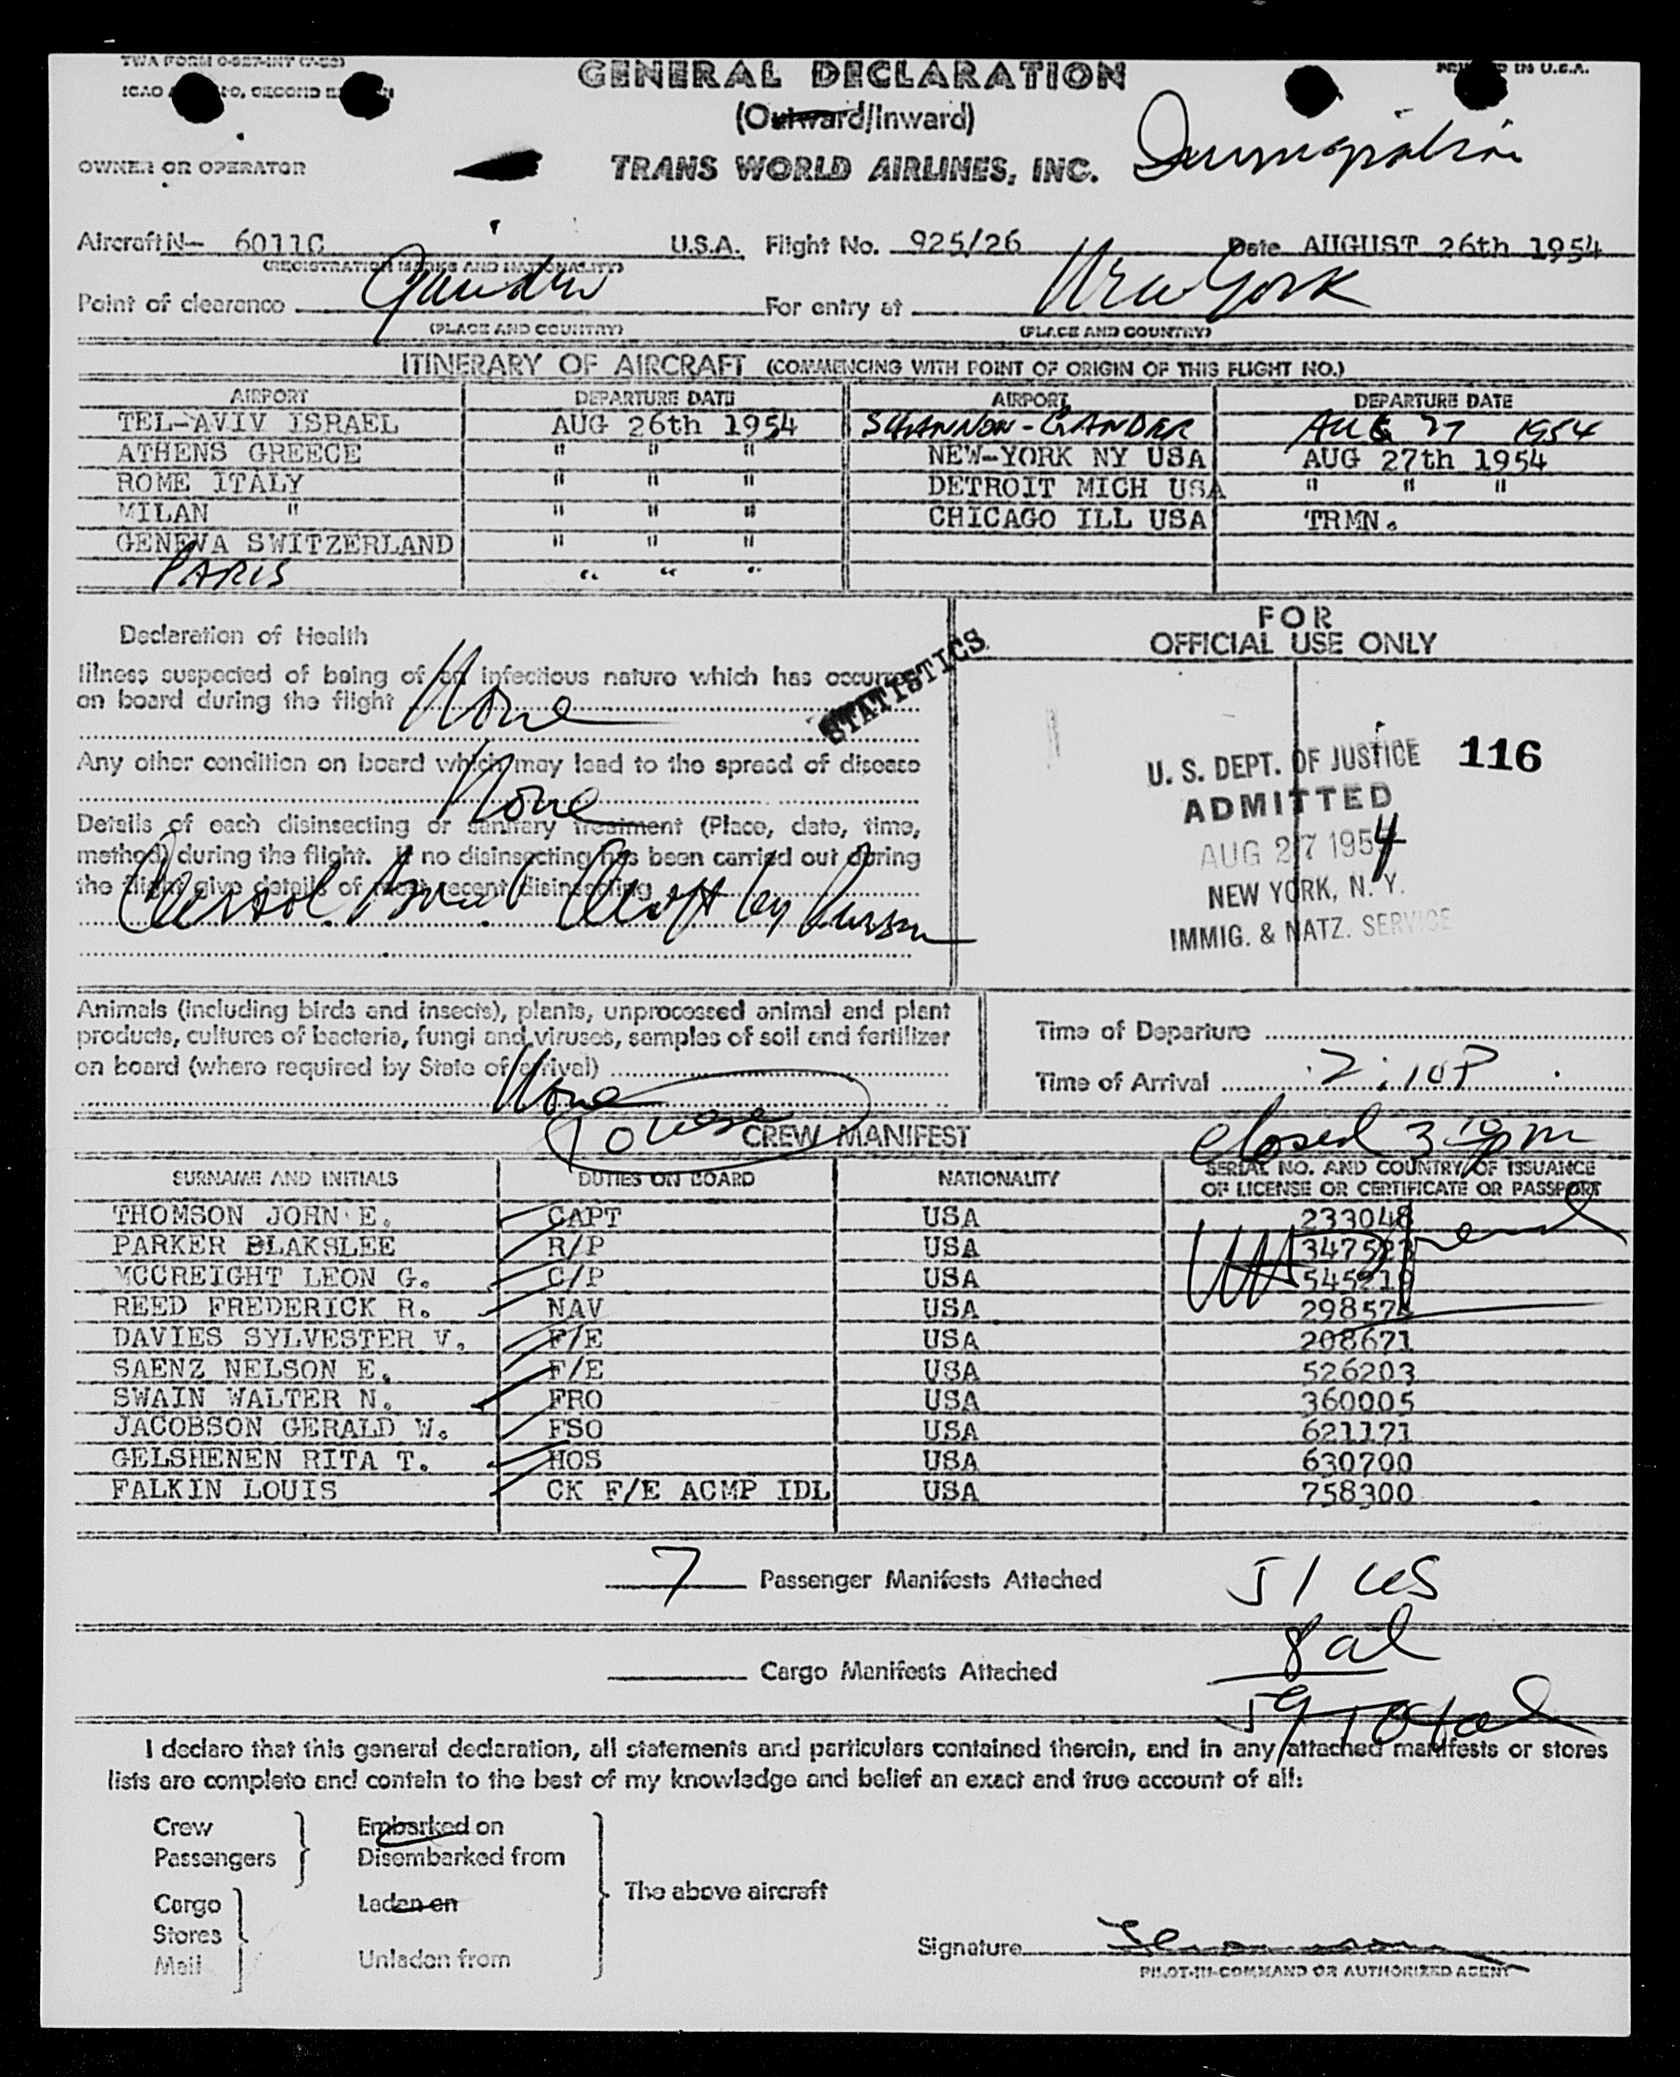 TWA FORM O-527-INT (7-53)
ICAO SECOND
PRINTED IN U.S.A.
GENERAL DECLARATION
(Outward/Inward)
Immigration
OWNER OR OPERATOR TRANS WORLD AIRLINES, INC.
Aircraft N- 6011C U.S.A. Flight No. 925/26 Date AUGUST 26th 1954
(REGISTRATION MARKS AND NATIONALITY)
Point of clearance Gander For entry at New York
(PLACE AND COUNTRY) (PLACE AND COUNTRY)
ITINERARY OF AIRCRAFT (COMMENCING WITH POINT OF ORIGIN OF THIS FLIGHT NO.)
AIRPORT DEPARTURE DATE AIRPORT DEPARTURE DATE
TEL-AVIV ISRAEL AUG 26th 1954 SHANNON-GANDER AUG 27 1954
ATHENS GREECE " " " NEW-YORK NY USA AUG 27th 1954
ROME ITALY " " " DETROIT MICH USA " " "
MILAN " " " " CHICAGO ILL USA TRMN.
GENEVA SWITZERLAND " " "
PARIS " " "
Declaration of Health
Illness suspected of being of an infectious nature which has occurred
on board during the flight None
STATISTICS
Any other condition on board which may lead to the spread of disease
None
Details of each disinsecting or sanitary treatment (Place, date, time,
method) during the flight. If no disinsecting has been carried out during
the flight give details of most recent disinsecting
Aerosol Aloft by Purser
FOR
OFFICIAL USE ONLY
U. S. DEPT. OF JUSTICE 116
ADMITTED
AUG 27 1954
NEW YORK, N. Y.
IMMIG. & NATZ. SERVICE
Animals (including birds and insects), plants, unprocessed animal and plant
products, cultures of bacteria, fungi and viruses, samples of soil and fertilizer
on board (where required by State of arrival)
None
Time of Departure
Time of Arrival 2:10P
closed 3 10 pm
10
CREW MANIFEST
SURNAME AND INITIALS DUTIES ON BOARD NATIONALITY SERIAL NO. AND COUNTRY OF ISSUANCE
OF LICENSE OR CERTIFICATE OR PASSPORT
THOMSON JOHN E. CAPT USA 233048
PARKER BLAKSLEE R/P USA 347523
MCCREIGHT LEON G. C/P USA 545219
REED FREDERICK R. NAV USA 298574
DAVIES SYLVESTER V. F/E USA 208671
SAENZ NELSON E. F/E USA 526203
SWAIN WALTER N. FRO USA 360005
JACOBSON GERALD W. FSO USA 621171
GELSHENEN RITA T. HOS USA 630700
FALKIN LOUIS CK F/E ACMP IDL USA 758300
7 Passenger Manifests Attached 51 US
8 al
Cargo Manifests Attached
59 Total
I declare that this general declaration, all statements and particulars contained therein, and in any attached manifests or stores
lists are complete and contain to the best of my knowledge and belief an exact and true account of all:
Crew Embarked on
Passengers Disembarked from
The above aircraft
Cargo Laden on
Stores
Mail Unladen from
Signature
PILOT-IN-COMMAND OR AUTHORIZED AGENT